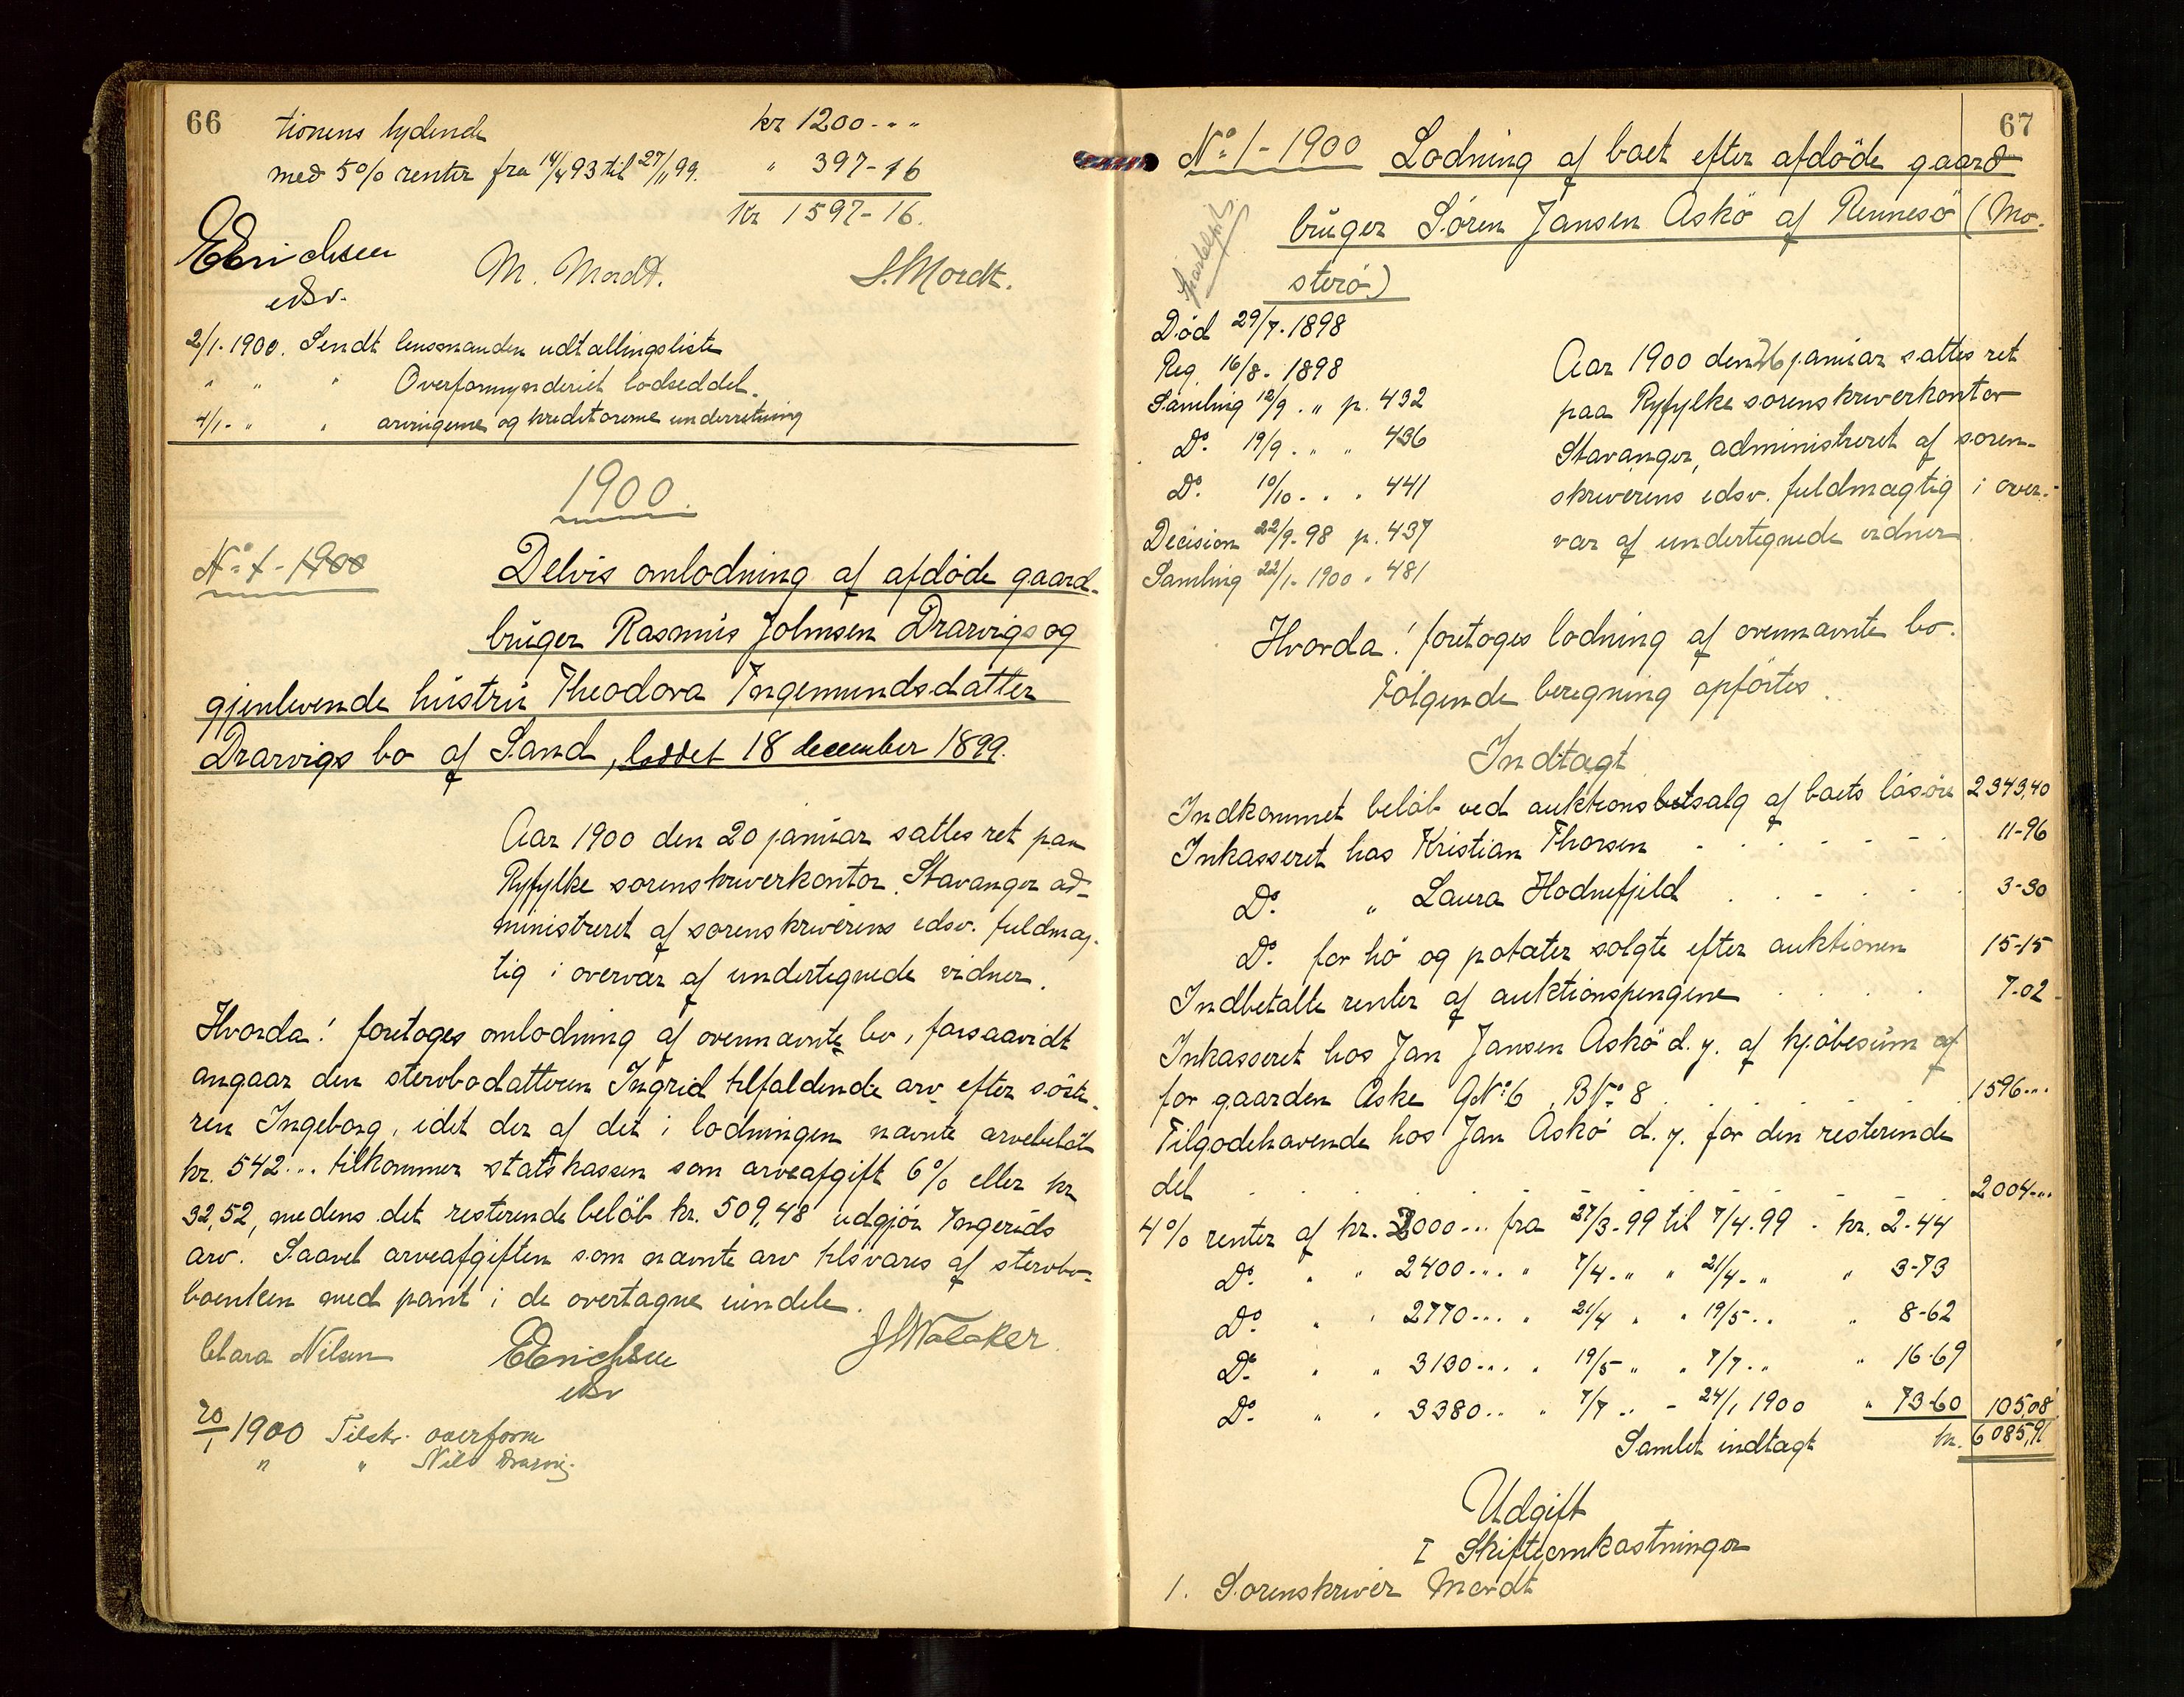 66
tionens lydende kr 1200-""
med 5% renter fra 14/4 93 til 27/11 99. " 397-16
Kr 1597-16.
EErichsen
edsv.
M. Mordt.
S. Mordt.
2/1-1900. Sendt lensmanden udtallingsliste
" " " Overformynderiet lodseddel.
4/1-" " arvingerne og kreditorerne underretning
1900.
No 1-1900
Delvis omlodning af afdöde gaard-
brüger Rasmüs Johnsen Drarvigs og
gjenlevende hüstrü Theodora Ingemundsdatter
Drarvigs bo af Sand, loddet 18 december 1899.
Aar 1900 den 20 janüar sattes ret paa
Ryfylke sorenskriverkontor, Stavanger ad-
ministreret af sorenskriverens edsv. fuldmæg-
tig i overvær af undertegnede vidner.
Hvorda! foretoges omlodning af ovennævnte bo, forsaavidt
angaar den stervbodatteren Ingrid tilfaldende arv efter söste-
ren Ingeborg, idet der af det i lodningen nævnte arvebelöb
kr. 542-.. tilkommer statskassen som arveafgift 6% eller kr
32,52, medens det resterende belöb kr. 509,48 udgjör Ingerids
arv. Saavel arveafgiften som nævnte arv tilsvares af stervbo-
boenken med pant i de overtagne eiendele.
Clara Nilsen
EErichsen
edsv
J S Walaker
20/1 1900 Tilskr. overform
" " Nils Drarvig.
67
No 1-1900 Lodning af boet efter afdöde gaard
brüger Sören Jansen Askö af Rennesö (Mo-
sterö)
Död 29/7-1898
Reg. 16/8-1898
Samling 12/9 . " p. 432
Do. 19/9 . " " 436
Do. 10/10 . . . 441
Decision 22/9-98 p. 437
Samling 22/1-1900 " 481
Aar 1900 den 26 janüar sattes ret
paa Ryfylke sorenskriverkontor
Stavanger, administreret af soren-
skriverens edsv. fuldmægtig i over-
vær af undertegnede vidner.
Hvorda! foretoges lodning af ovennævnte bo.
Fölgende beregning opförtes.
Indtægt
Indkommet belöb ved auktionsbortsalg af boets lösöre 2343,40
Inkasseret hos Kristian Thorsen 11-96
Do. " Laura Hodnefjeld 3-30
Do. for hö og potater solgte efter auktionen 15-15
Indbetalte renter af auktionspengene 7-02
Inkasseret hos Jan Jansen Askö d. y. af kjöbesüm af
for gaarden Aske GNo 6, BNo 8 1596-..
Tilgodehavende hos Jan Askö d. y. for den resterende
del 2004-..
4% renter af kr. 2000-.. fra 27/3-99 til 7/4-99 . kr. 2-44
Do. " " 2400-.. " 7/4-" " 21/4-" " 3-73
Do. " " 2770-.. " 21/4 " " 19/5-.. " 8-62
Do. " " 3130-.. " 19/5-" " 7/7-.. " 16-69
Do. " " 3380-.. " 7/7-.. - 24/1 1900 " 73-60 105,08
Samlet indtægt kr. 6085,91
Udgift
I Skifteomkostninger
1. Sorenskriver Mordt